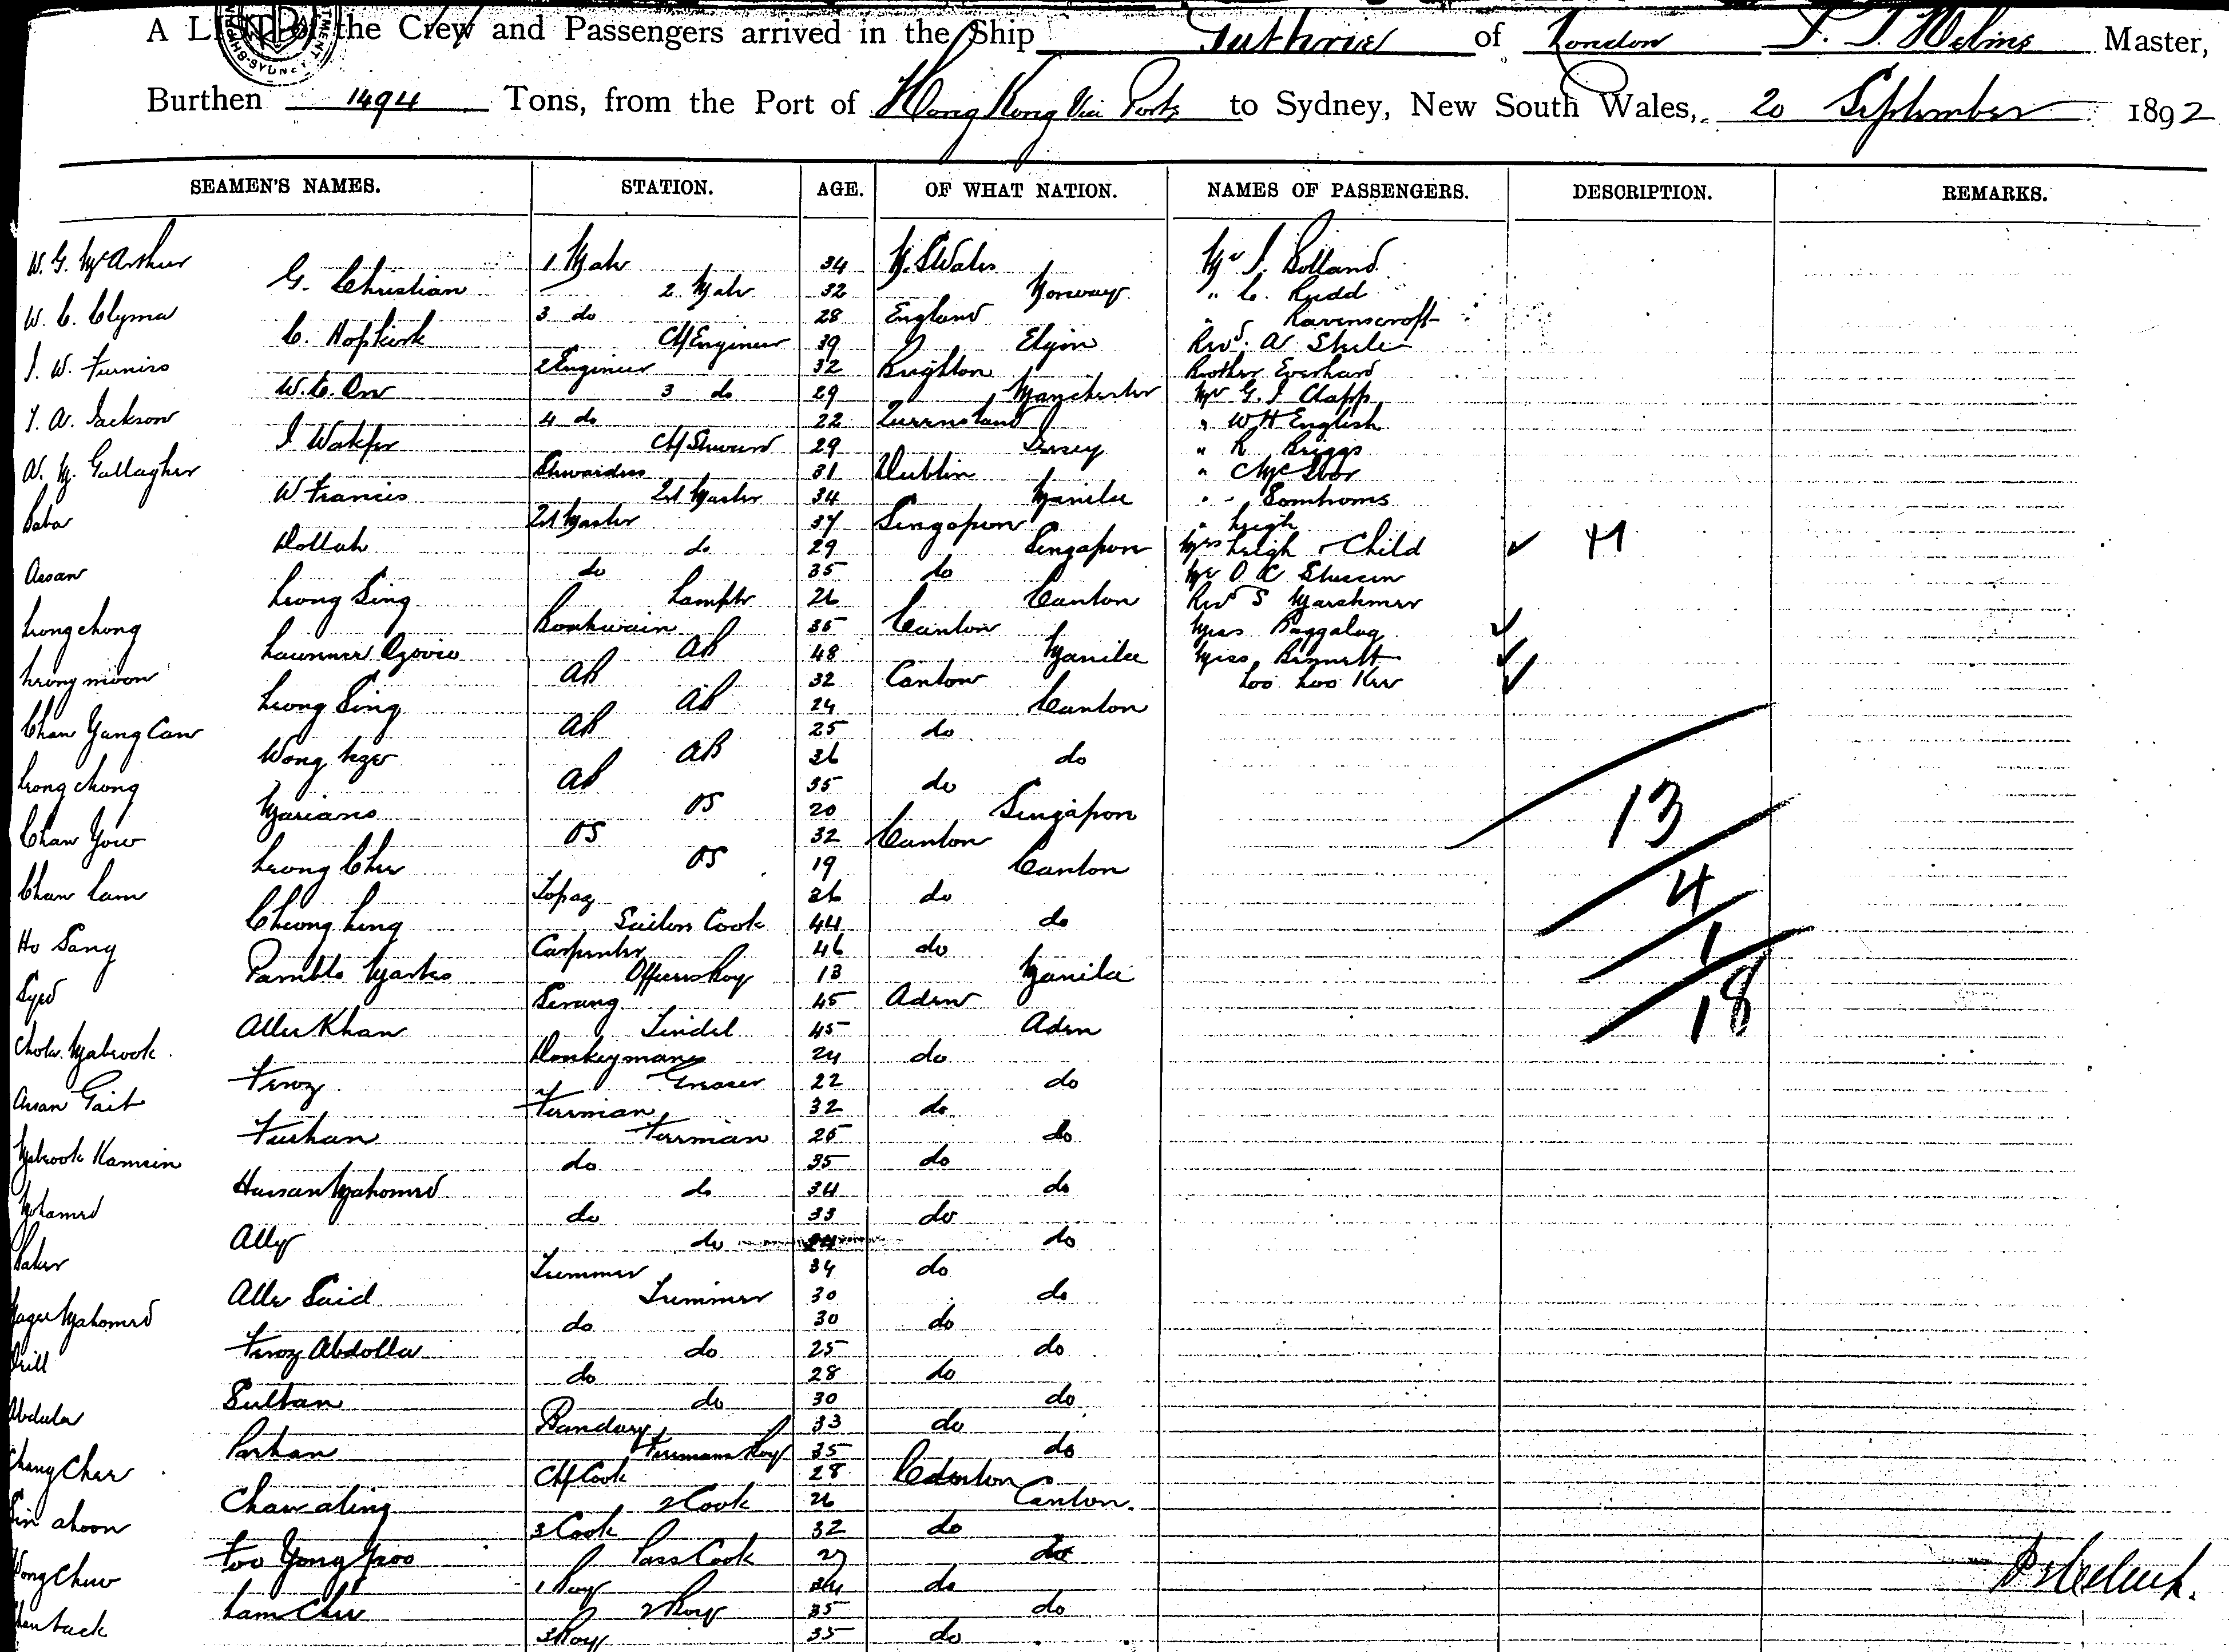 A LIST of the Crew and Passengers arrived in the Ship Guthrie of London Master,
Burthen 1494 Tons, from the Port of Hong Kong Via Ports to Sydney, New South Wales, 20 September 1892
SEAMEN'S NAMES. STATION. AGE. OF WHAT NATION. NAMES OF PASSENGERS. DESCRIPTION. REMARKS.
W. G. McArthur 1 Mate 34 N. S Wales Mr J. Bolland
G. Christian 2 Mate 32 Norway " C. Rudd
W. C. Clyma 3 do 28 England " Ravenscroft
C. Hopkirk Chf Engineer 39 Elgin Revd. A Steele
J. W. Furniss 2 Engineer 32 Brighton Brother Everhard
W. C. Orr 3 do 29 Manchester Mr G. J Clapp
T. A. Jackson 4 do 22 Queensland " W H English
J. Wakfer Chf Steward 29 Jersey " R Briggs
A. M. Gallagher Stewardess 31 Dublin " McIvor
W Francis Qt Master 34 Manila " Somhoms
Baba Qt Master 37 Singapore " Leigh
Dollah do 29 Singapore Mrs Leigh & Child 4
Assan do 35 do Mr O C
Leong Sing Lamptr 26 Canton Revd S Marshman
Leong chong Boatswain 35 Canton Miss Baggaley
AB 48 Manila Miss Bennett
Leong moon AB 32 Canton Loo Loo Kee
Leong Sing AB 24 Canton
Chan Yang Can AB 25 do
Wong AB 36 do
Leong chong AB 35 do
Mariano OS 20 Singapore
Chan Yow OS 32 Canton
Leong Chee OS 19 Canton
Chan Cam Topaz 26 do
Cheong Leng Sailors Cook 44 do
Ho Sang Carpenter 46 do
Pamblo Marko Officers Boy 13 Manila
Syed Serang 45 Aden
Allee Khan Tindel 45 Aden
Mabrook Donkeyman 24 do
Feroz Greaser 22 do
Assan Gait Fireman 32 do
Furhan Fireman 25 do
Mabrook Kamsin do 35 do
Hassan Mahomed do 34 do
Mohamed do 33 do
Ally do 24 do
Baker Trimmer 34 do
Alle Said Trimmer 30 do
Mahomed do 30 do
Feroz Abdolla do 25 do
do 28 do
Sultan do 30 do
Abdula Bandary 33 do
Parhan Firemans Boy 35 do
Chang Chee Chf Cook 28 Canton
Chaw aling 2 Cook 26 Canton.
Sin ahoon 3 Cook 32 do
Foo Yong Poo Pass Cook 27 do
Wong Chew 1 Boy 34 do
Lam Chee 2 Boy 35 do
3 Boy 35 do
13
4
1
18